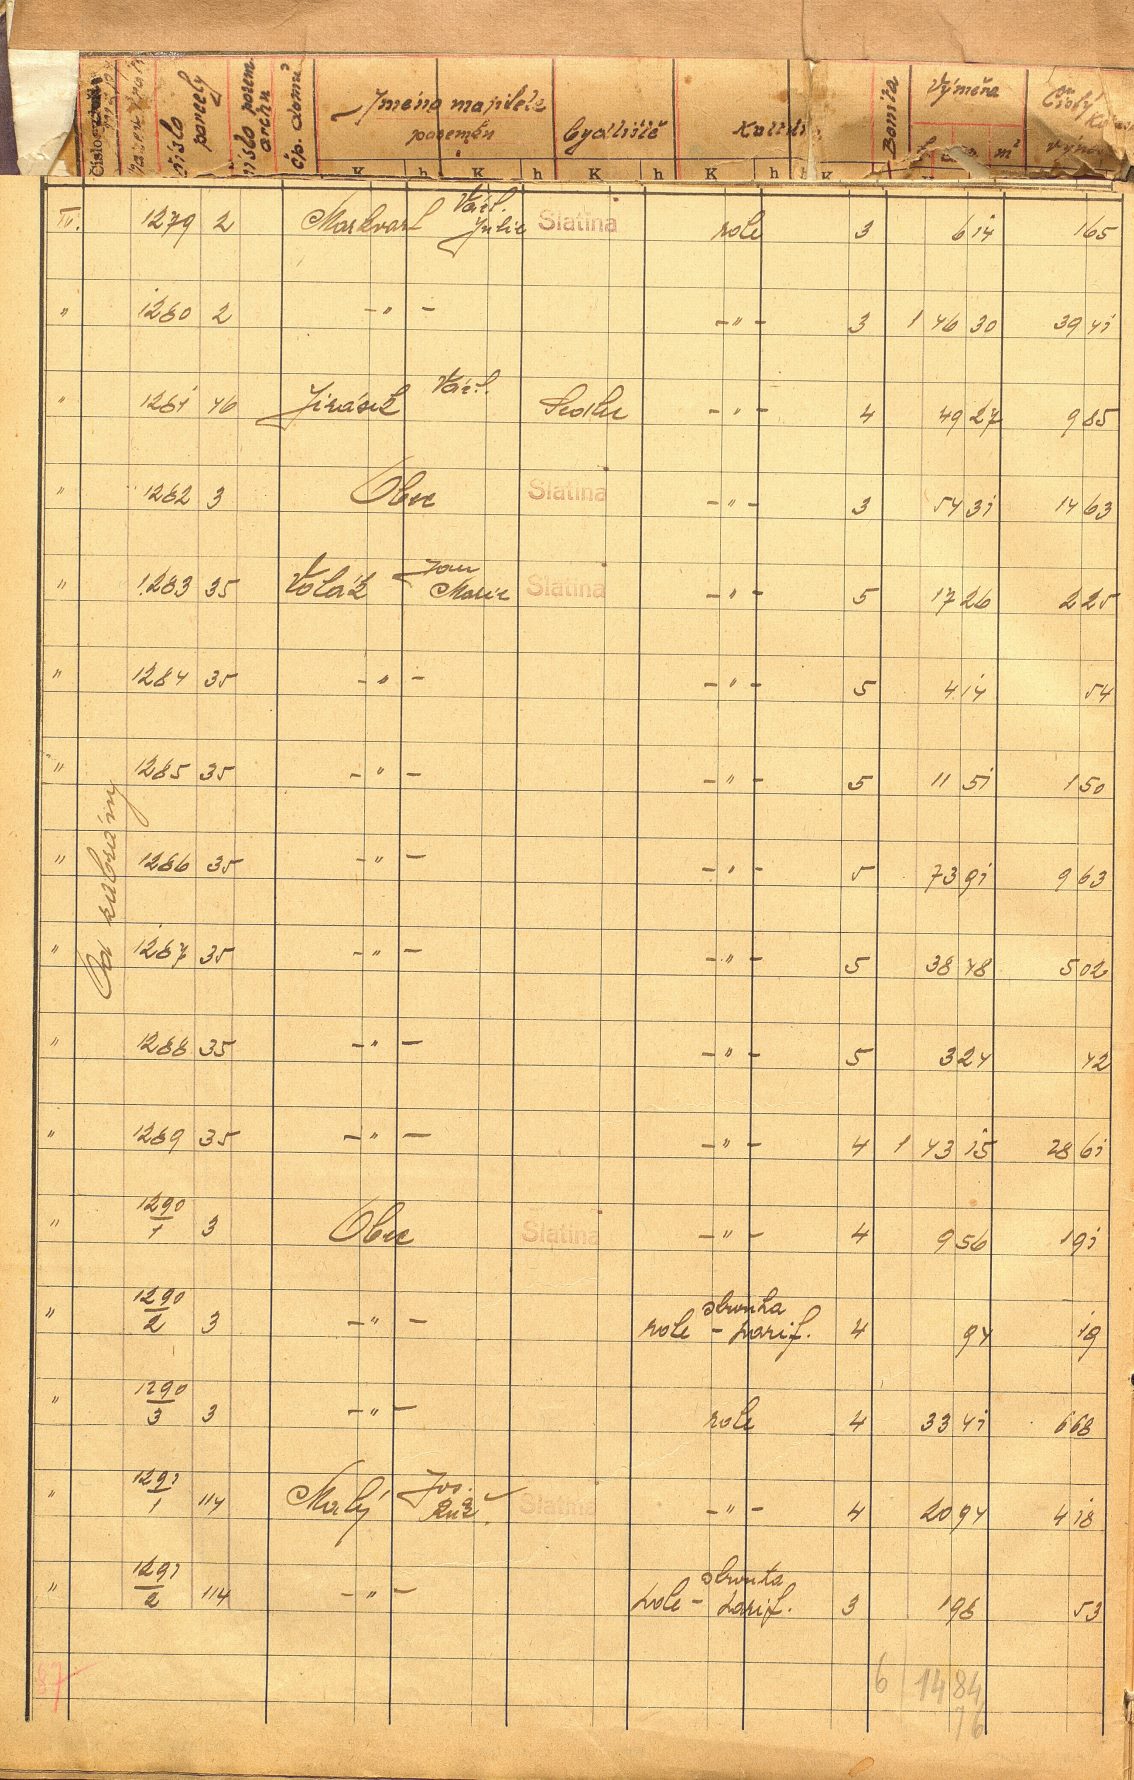 Číslo
číslo parcely
číslo pozem. archu
čp. domu
Jméno majitele pozemku
bydliště
Bonita
Výměra
m²
Čistý
K h K h K h K h K
IV. 1279 2 Markvart Václ. Julie Slatina role 3 6 14 165
" 1280 2 -"- -"- 3 1 46 30 39 41
" 1281 46 Jirásek Václ. Sedlec -"- 4 49 27 9 85
" 1282 3 Obec Slatina -"- 3 54 31 14 63
" 1283 35 Volák Jan Marie Slatina -"- 5 17 26 2 25
" 1284 35 -"- -"- 5 4 14 54
" 1285 35 -"- -"- 5 11 51 1 50
" 1286 35 -"- -"- 5 73 91 9 63
" 1287 35 -"- -"- 5 38 48 5 02
" 1288 35 -"- -"- 5 3 24 42
" 1289 35 -"- -"- 4 1 43 15 28 61
" 1290/1 3 Obec Slatina -"- 4 9 56 1 91
" 1290/2 3 -"- role - strouha parif. 4 94 19
" 1290/3 3 -"- role 4 33 41 6 68
" 1291/1 114 Malý Jos. Slatina -"- 4 20 94 4 18
" 1291/2 114 -"- role - strouha parif. 3 1 98 53
87
6 14 84
76